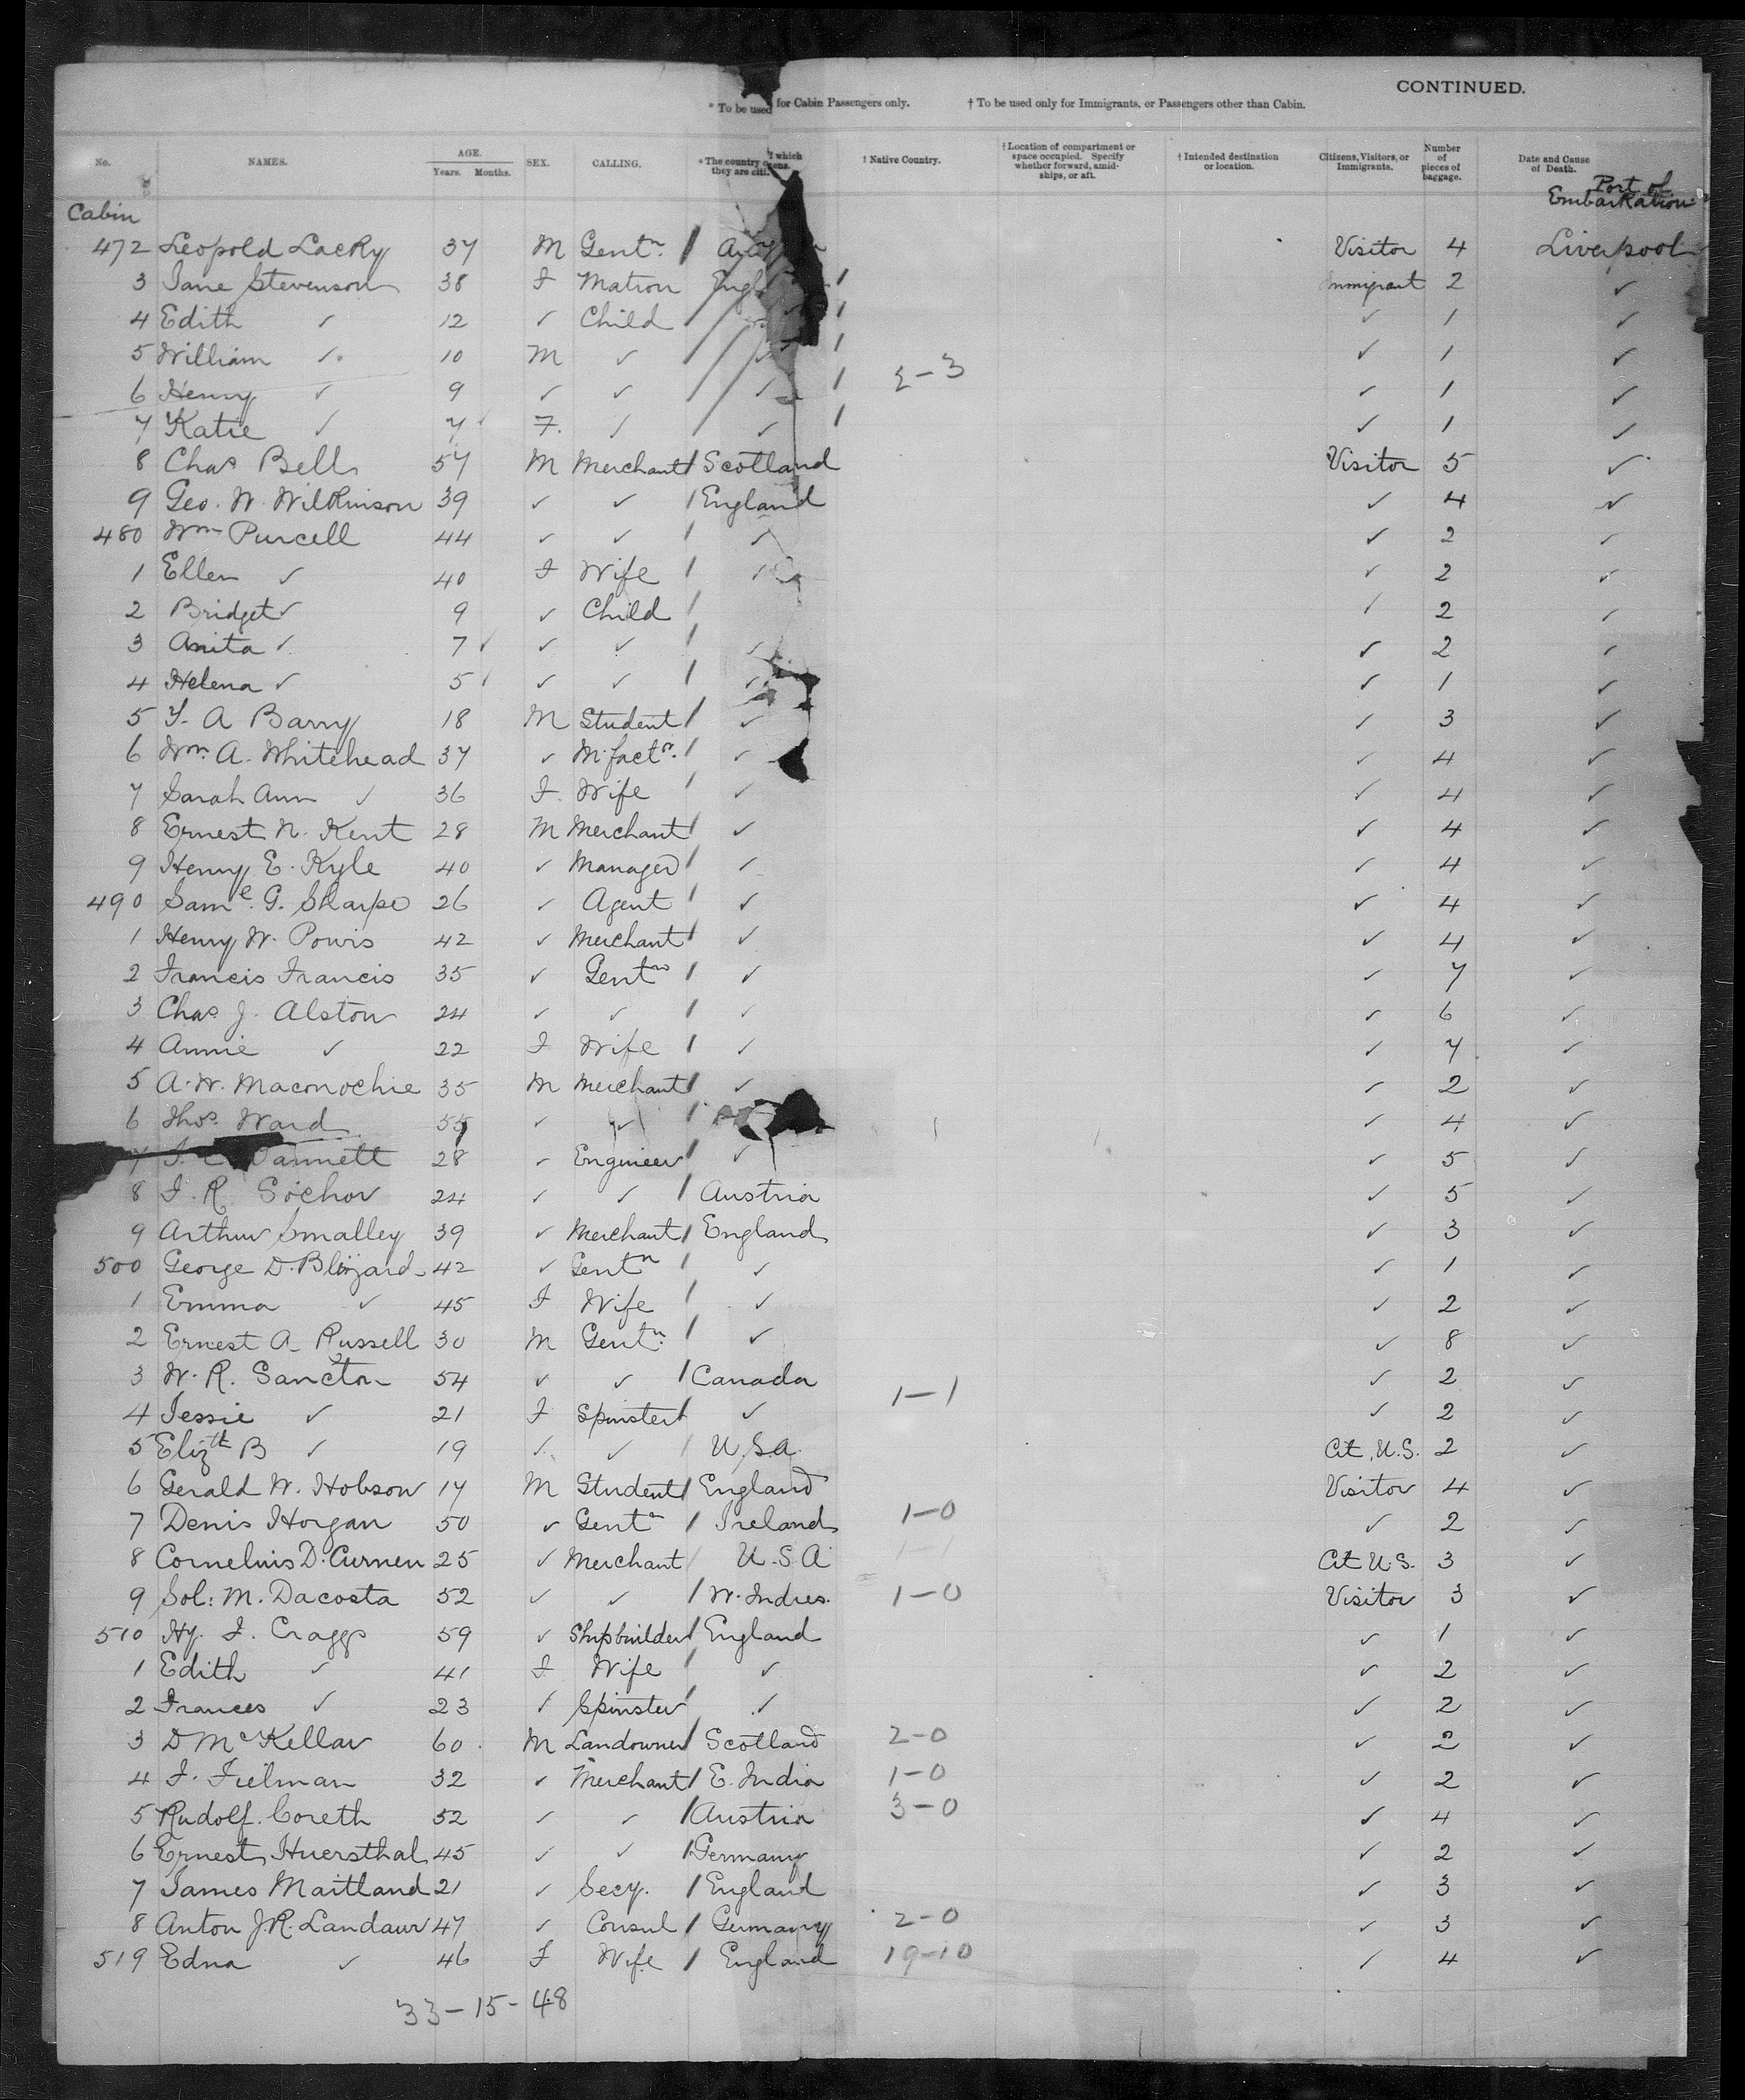 CONTINUED.
* To be used for Cabin Passengers only. † To be used only for Immigrants, or Passengers other than Cabin.
No. NAMES. AGE. Years. Months. SEX. CALLING. * The country of which they are citizens. † Native Country. † Location of compartment or space occupied. Specify whether forward, amidships, or aft. † Intended destination or location. Citizens, Visitors, or Immigrants. Number of pieces of baggage. Date and Cause of Death.
Port of Embarkation
Cabin
472 Leopold Lacky 37 M Gentn. / Visitor 4 Liverpool
3 Jane Stevenson 38 F Matron Immigrant 2 ✓
4 Edith ✓ 12 ✓ Child ✓ 1 ✓
5 William ✓ 10 M ✓ ✓ ✓ 1 ✓
6 Henry ✓ 9 ✓ ✓ ✓ 2-3 ✓ 1 ✓
7 Katie ✓ 7 F. ✓ ✓ ✓ 1 ✓
8 Chas Bell 57 M Merchant / Scotland Visitor 5 ✓
9 Geo. W. Wilkinson 39 ✓ ✓ / England ✓ 4 ✓
480 Wm Purcell 44 ✓ ✓ / ✓ ✓ 2 ✓
1 Ellen ✓ 40 F Wife / ✓ ✓ 2 ✓
2 Bridget ✓ 9 ✓ Child / ✓ 2 ✓
3 Anita ✓ 7 ✓ ✓ / ✓ ✓ 2 ✓
4 Helena ✓ 5 ✓ ✓ / ✓ ✓ 1 ✓
5 Y. A Barry 18 M Student / ✓ ✓ 3 ✓
6 Wm. A. Whitehead 37 ✓ M'factr. / ✓ ✓ 4 ✓
7 Sarah Ann ✓ 36 F. Wife / ✓ ✓ 4 ✓
8 Ernest N. Kent 28 M Merchant / ✓ ✓ 4 ✓
9 Henry E. Kyle 40 ✓ Manager / ✓ ✓ 4 ✓
490 Saml. G. Sharpe 26 ✓ Agent / ✓ ✓ 4 ✓
1 Henry W. Powis 42 ✓ Merchant / ✓ ✓ 4 ✓
2 Francis Francis 35 ✓ Gentn / ✓ ✓ 7 ✓
3 Chas J. Alston 24 ✓ ✓ / ✓ ✓ 6 ✓
4 Annie ✓ 22 F Wife / ✓ ✓ 7 ✓
5 A. W. Maconochie 35 M Merchant / ✓ ✓ 2 ✓
6 Thos. Ward 55 ✓ ✓ / ✓ 4 ✓
7 28 ✓ Engineer / ✓ ✓ 5 ✓
8 F. R. Sochor 24 ✓ ✓ / Austria ✓ 5 ✓
9 Arthur Smalley 39 ✓ Merchant / England ✓ 3 ✓
500 George D. Blizzard 42 ✓ Gentn / ✓ ✓ 1 ✓
1 Emma ✓ 45 F Wife / ✓ ✓ 2 ✓
2 Ernest A. Russell 30 M Gentn. / ✓ ✓ 8 ✓
3 W. R. Sancton 54 ✓ ✓ / Canada ✓ 2 ✓
4 Jessie ✓ 21 F Spinster / ✓ 1-1 ✓ 2 ✓
5 Elizth B ✓ 19 ✓ ✓ / U.S.A. Cit. U.S. 2 ✓
6 Gerald W. Hobson 17 M Student / England Visitor 4 ✓
7 Denis Horgan 50 ✓ Gentn / Ireland 1-0 ✓ 2 ✓
8 Cornelius D. Curnen 25 ✓ Merchant / U.S.A 1-1 Cit U.S. 3 ✓
9 Sol: M. Dacosta 52 ✓ ✓ / W. Indies. 1-0 Visitor 3 ✓
510 Hy. F. Craggs 59 ✓ Shipbuilder / England ✓ 1 ✓
1 Edith ✓ 41 F Wife / ✓ ✓ 2 ✓
2 Frances ✓ 23 ✓ Spinster / ✓ ✓ 2 ✓
3 D McKellar 60 M Landowner / Scotland 2-0 ✓ 2 ✓
4 F. Fielman 32 ✓ Merchant / E. India 1-0 ✓ 2 ✓
5 Rudolf Coreth 52 ✓ ✓ / Austria 3-0 ✓ 4 ✓
6 Ernest Huersthal 45 ✓ ✓ / Germany ✓ 2 ✓
7 James Maitland 21 ✓ Secy. / England ✓ 3 ✓
8 Anton J.R. Landaur 47 ✓ Consul / Germany 2-0 ✓ 3 ✓
519 Edna ✓ 46 F Wife / England 19-10 ✓ 4 ✓
33-15-48